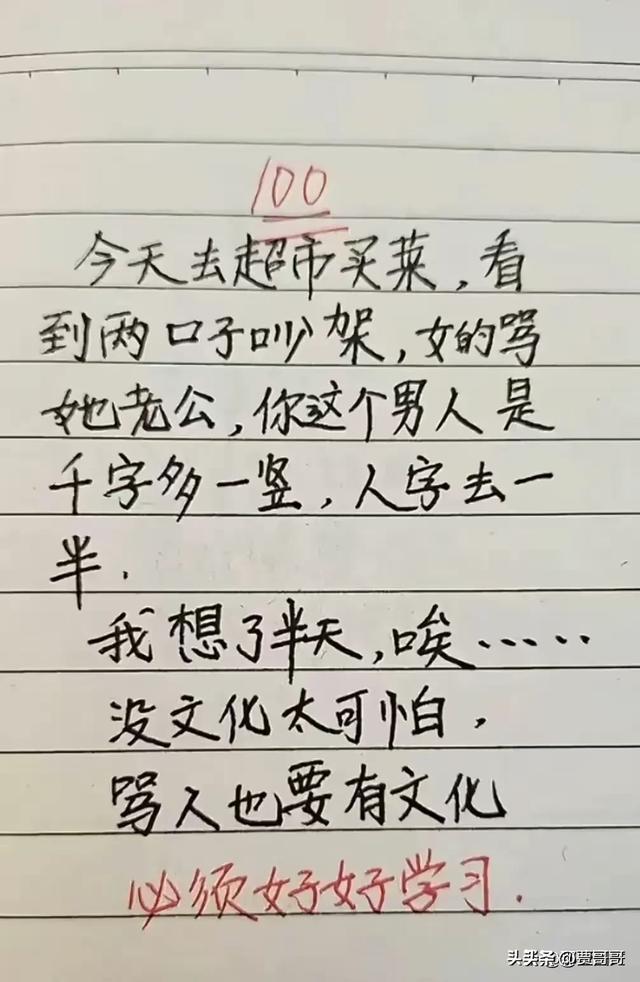 100
今天去超市买菜，看
到两口子吵架，女的骂
她老公，你这个男人是
千字多一竖，人字去一
半．
我想了半天，唉……
没文化太可怕，
骂人也要有文化
必须好好学习．
头条@贾哥哥